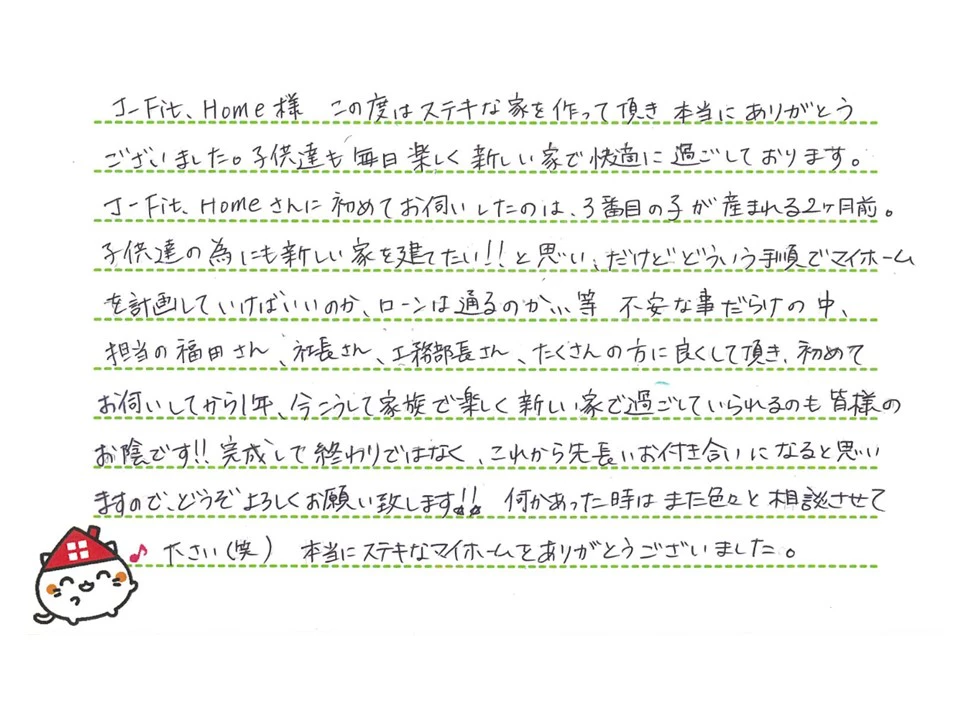 J-Fit、Home様　この度はステキな家を作って頂き 本当にありがとう
ございました。子供達も毎日楽しく新しい家で快適に過ごしております。
J-Fit、Homeさんに初めてお伺いしたのは、3番目の子が産まれる2ヶ月前。
子供達の為にも新しい家を建てたい!!と思い、だけどどういう手順でマイホーム
を計画していけばいいのか、ローンは通るのか…等　不安な事だらけの中、
担当の福田さん、社長さん、工務部長さん、たくさんの方に良くして頂き、初めて
お伺いしてから1年、今こうして家族で楽しく新しい家で過ごしていられるのも皆様の
お陰です!!完成して終わりではなく、これから先長いお付き合いになると思い
ますので、どうぞよろしくお願い致します!!　何かあった時はまた色々と相談させて
下さい(笑)　本当にステキなマイホームをありがとうございました。